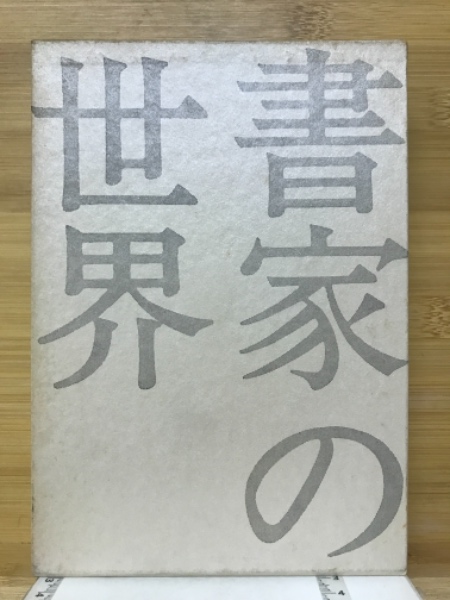 書家の
世界